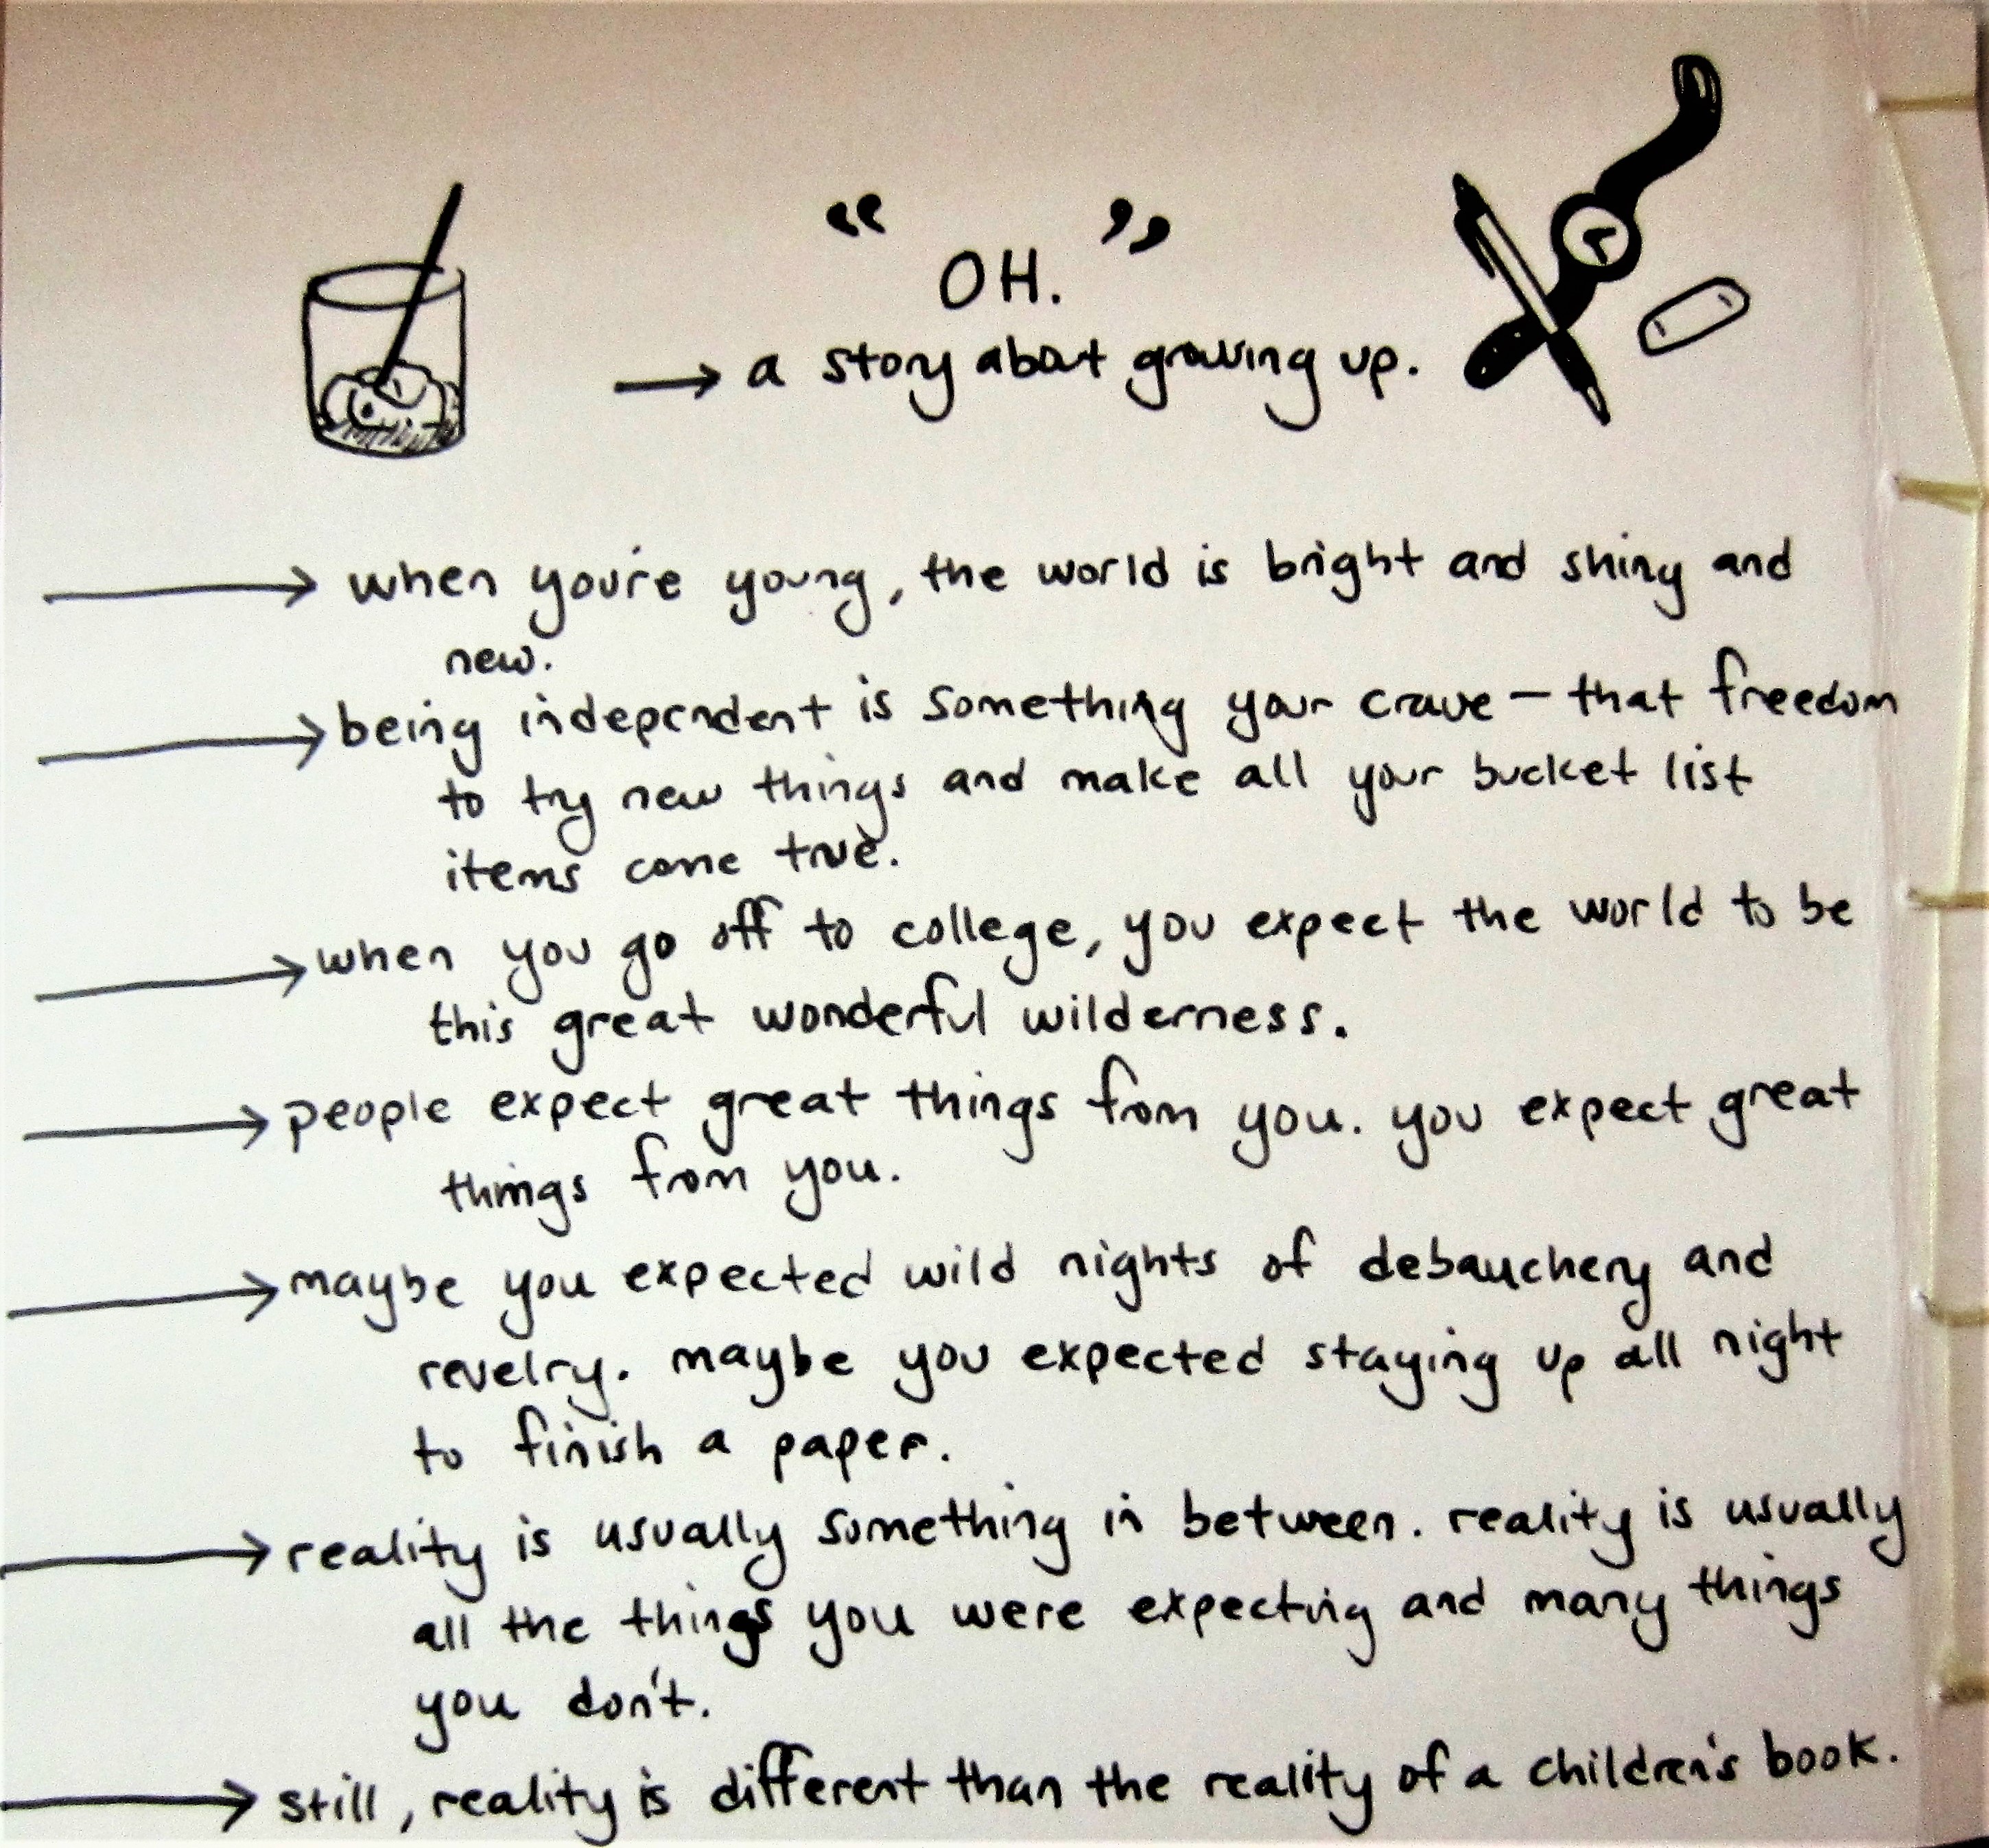 “ OH. ”
→ a story about growing up.
→ when you're young, the world is bright and shiny and
new.
→ being independent is something your crave – that freedom
to try new things and make all your bucket list
items come true.
→ when you go off to college, you expect the world to be
this great wonderful wilderness.
→ people expect great things from you. you expect great
things from you.
→ maybe you expected wild nights of debauchery and
revelry. maybe you expected staying up all night
to finish a paper.
→ reality is usually something in between. reality is usually
all the things you were expecting and many things
you don't.
→ still, reality is different than the reality of a children's book.